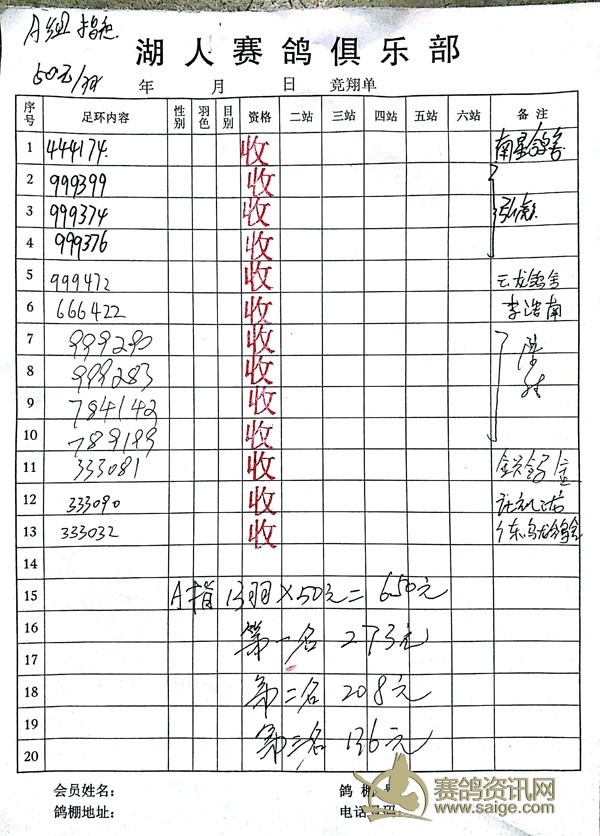 A组 指定
50元/羽
湖人赛鸽俱乐部
年 月 日 竞翔单
序号 足环内容 性别 羽色 目别 资格 二站 三站 四站 五站 六站 备注
1 444174 收 南星鸽舍
2 999399 收
3 999374 收
4 999376 收
5 999472 收 云龙鸽舍
6 666422 收 李浩南
7 999290 收
8 999283 收
9 784142 收
10 789199 收
11 333081 收
12 333090 收
13 333032 收
14
15 A指 13羽×50元=650元
16 第一名 273元
17
18 第二名 208元
19 第三名 136元
20
会员姓名： 鸽棚号
鸽棚地址： 电话号码：
赛鸽资讯网
www.saige.com